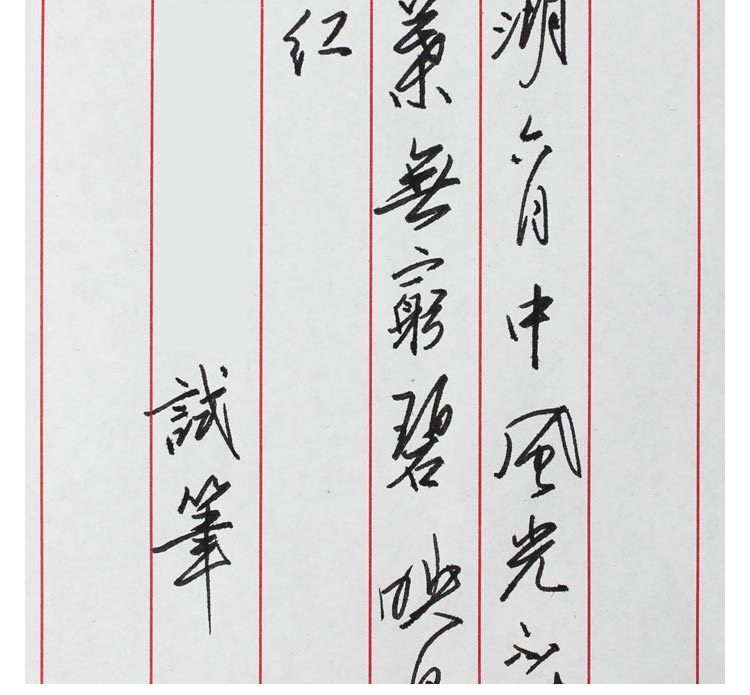 湖六月中風光不
葉無窮碧映日
红
試筆